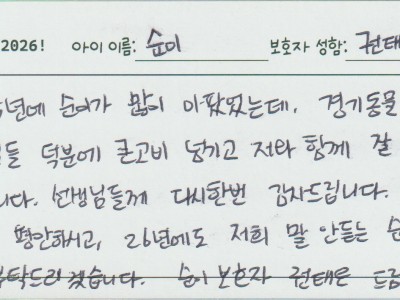 2026! 아이 이름: 순이 보호자 성함: 권태
년에 순이가 많이 아팠었는데, 경기동물
들 덕분에 큰고비 넘기고 저와 함께 잘
니다. 선생님들께 다시한번 감사드립니다.
평안하시고, 26년에도 저희 말 안듣는 순
부탁드리겠습니다. 순이 보호자 권태은 드림